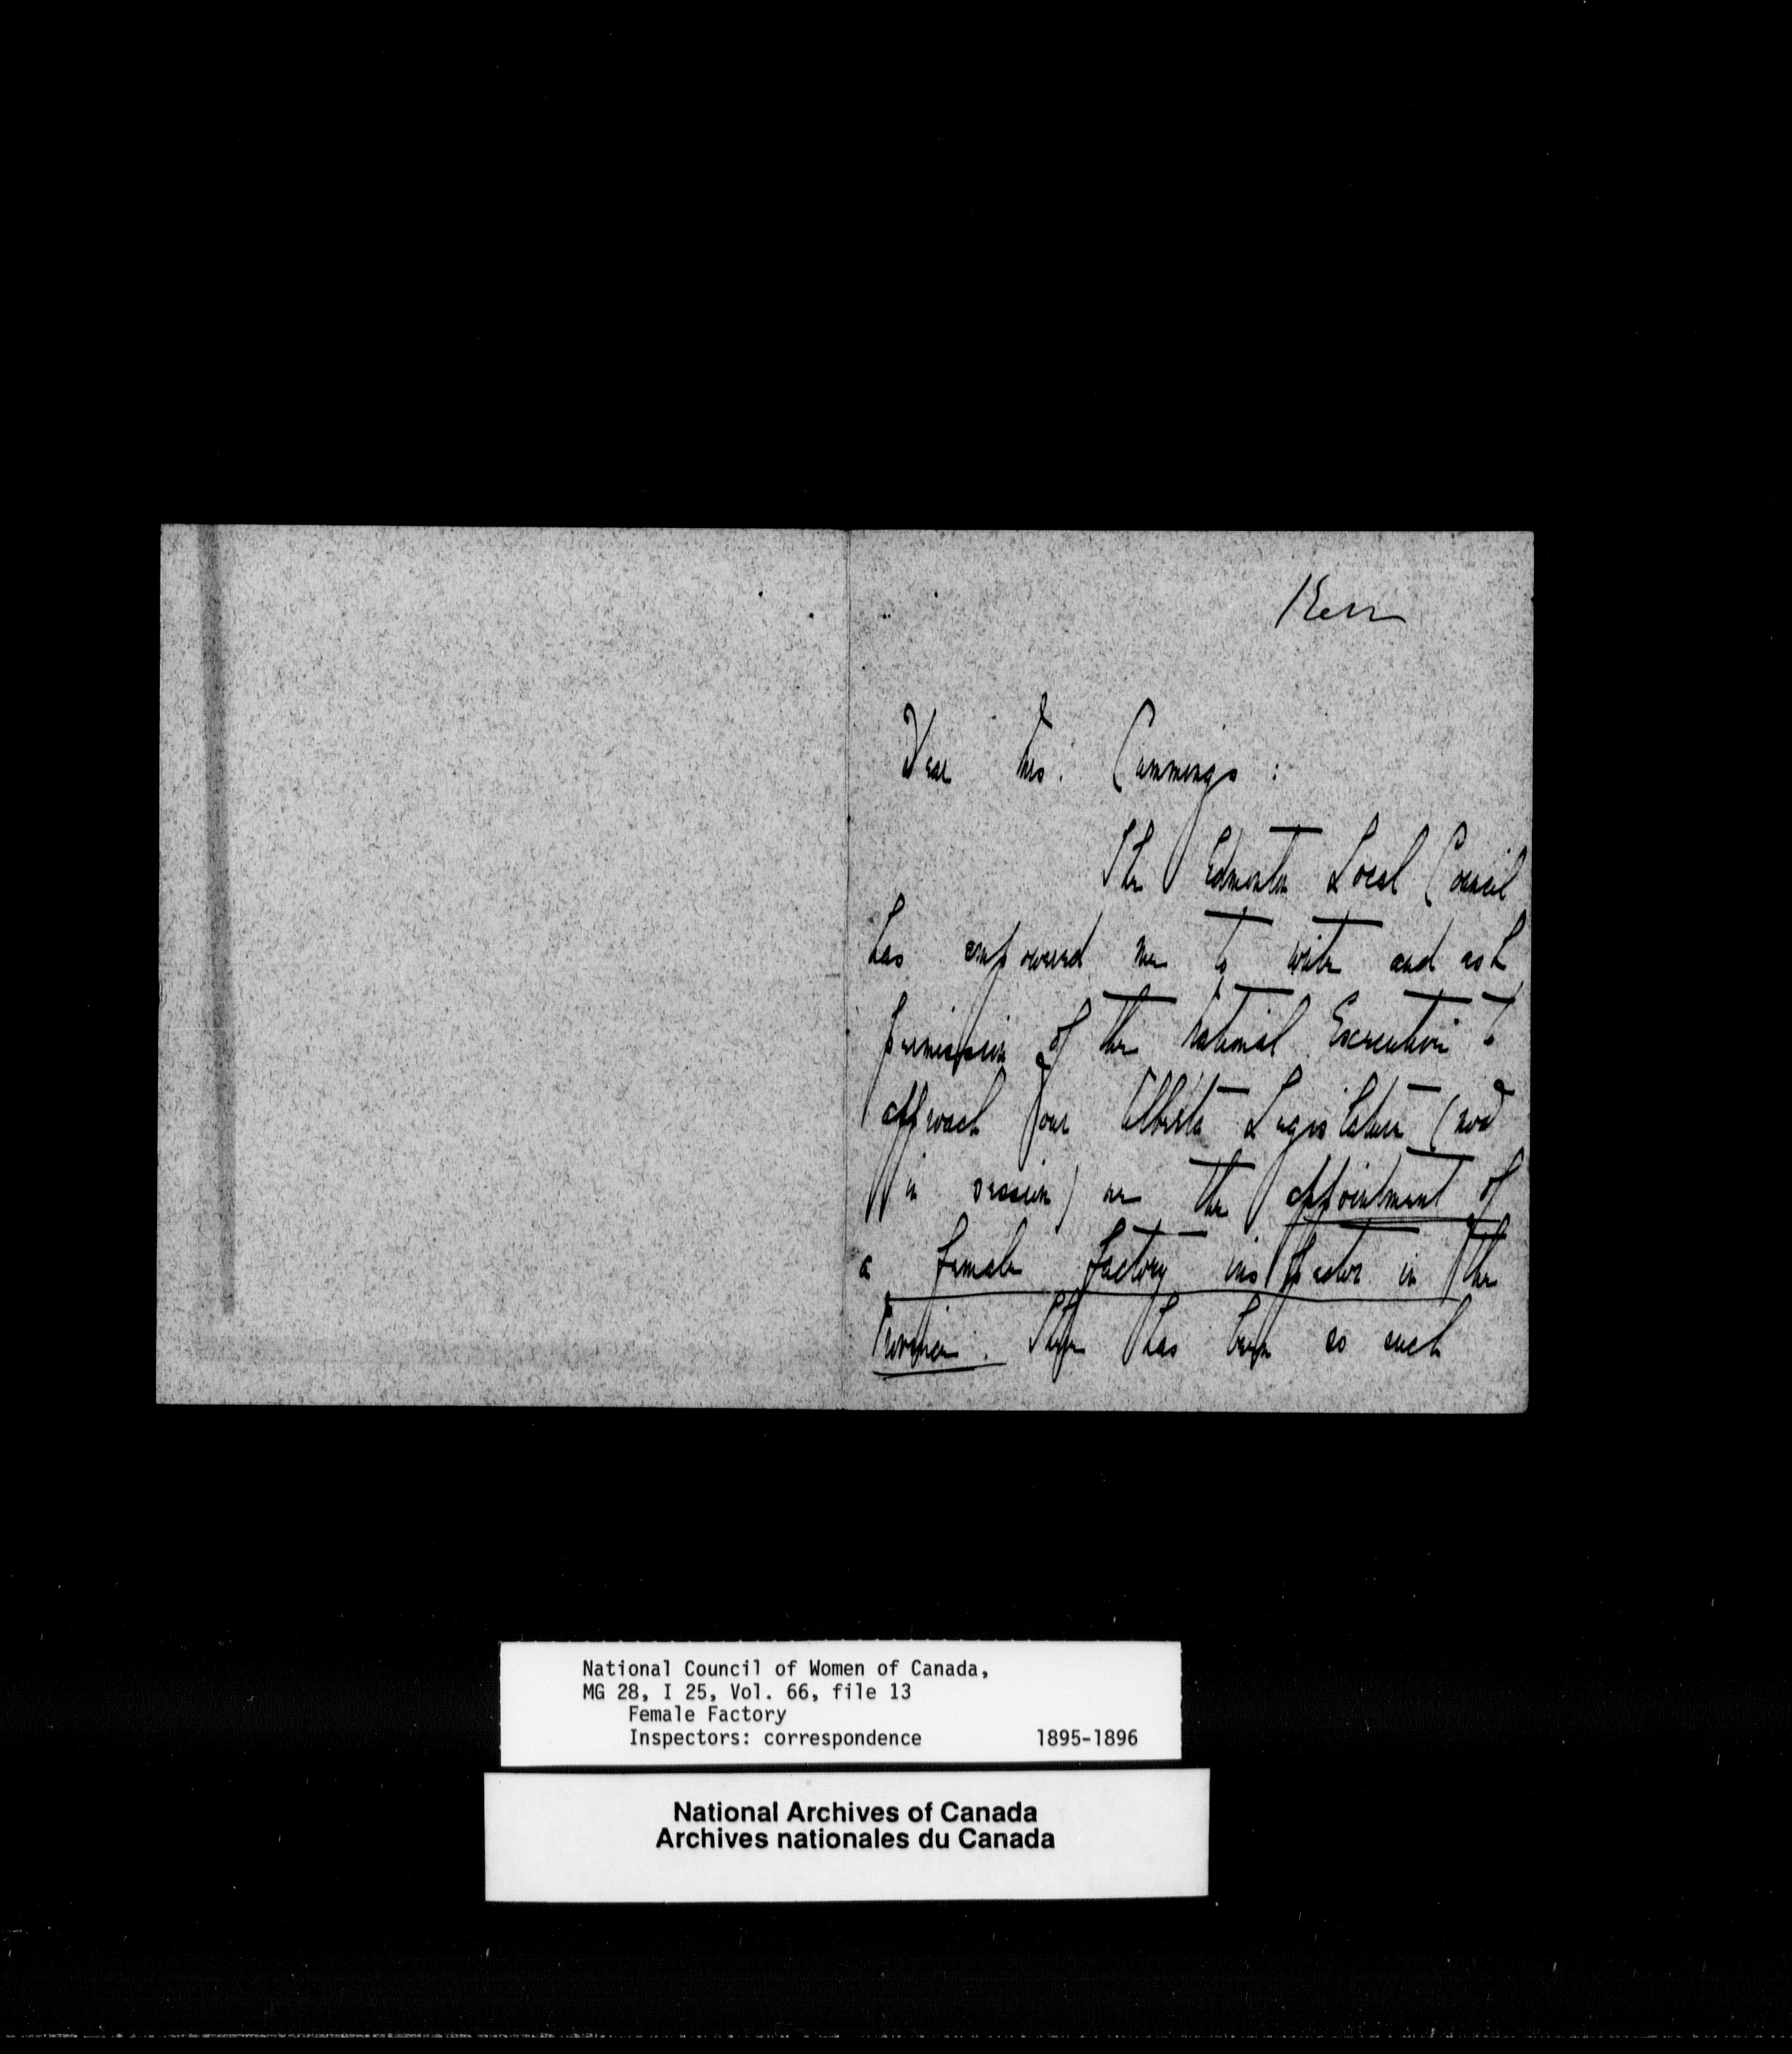 Kerr
Dear Mrs. Cummings :
The Edmonton Local Council
has empowered me to write and ask
permission of the National Executive to
approach our Alberta Legislature (now
in session) re the appointment of
a female factory inspector in the
Province. There has been so such
National Council of Women of Canada,
MG 28, I 25, Vol. 66, file 13
Female Factory
Inspectors: correspondence 1895-1896
National Archives of Canada
Archives nationales du Canada